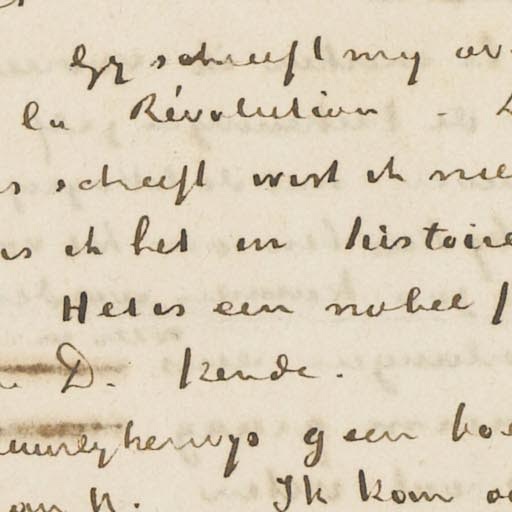 Gy schreeft my ov
la Révolution - L
is schreeft wist ik nie
is ik het en histoire
Het is een nobel
D. kende.
geen boe
an H. Ik kom oo